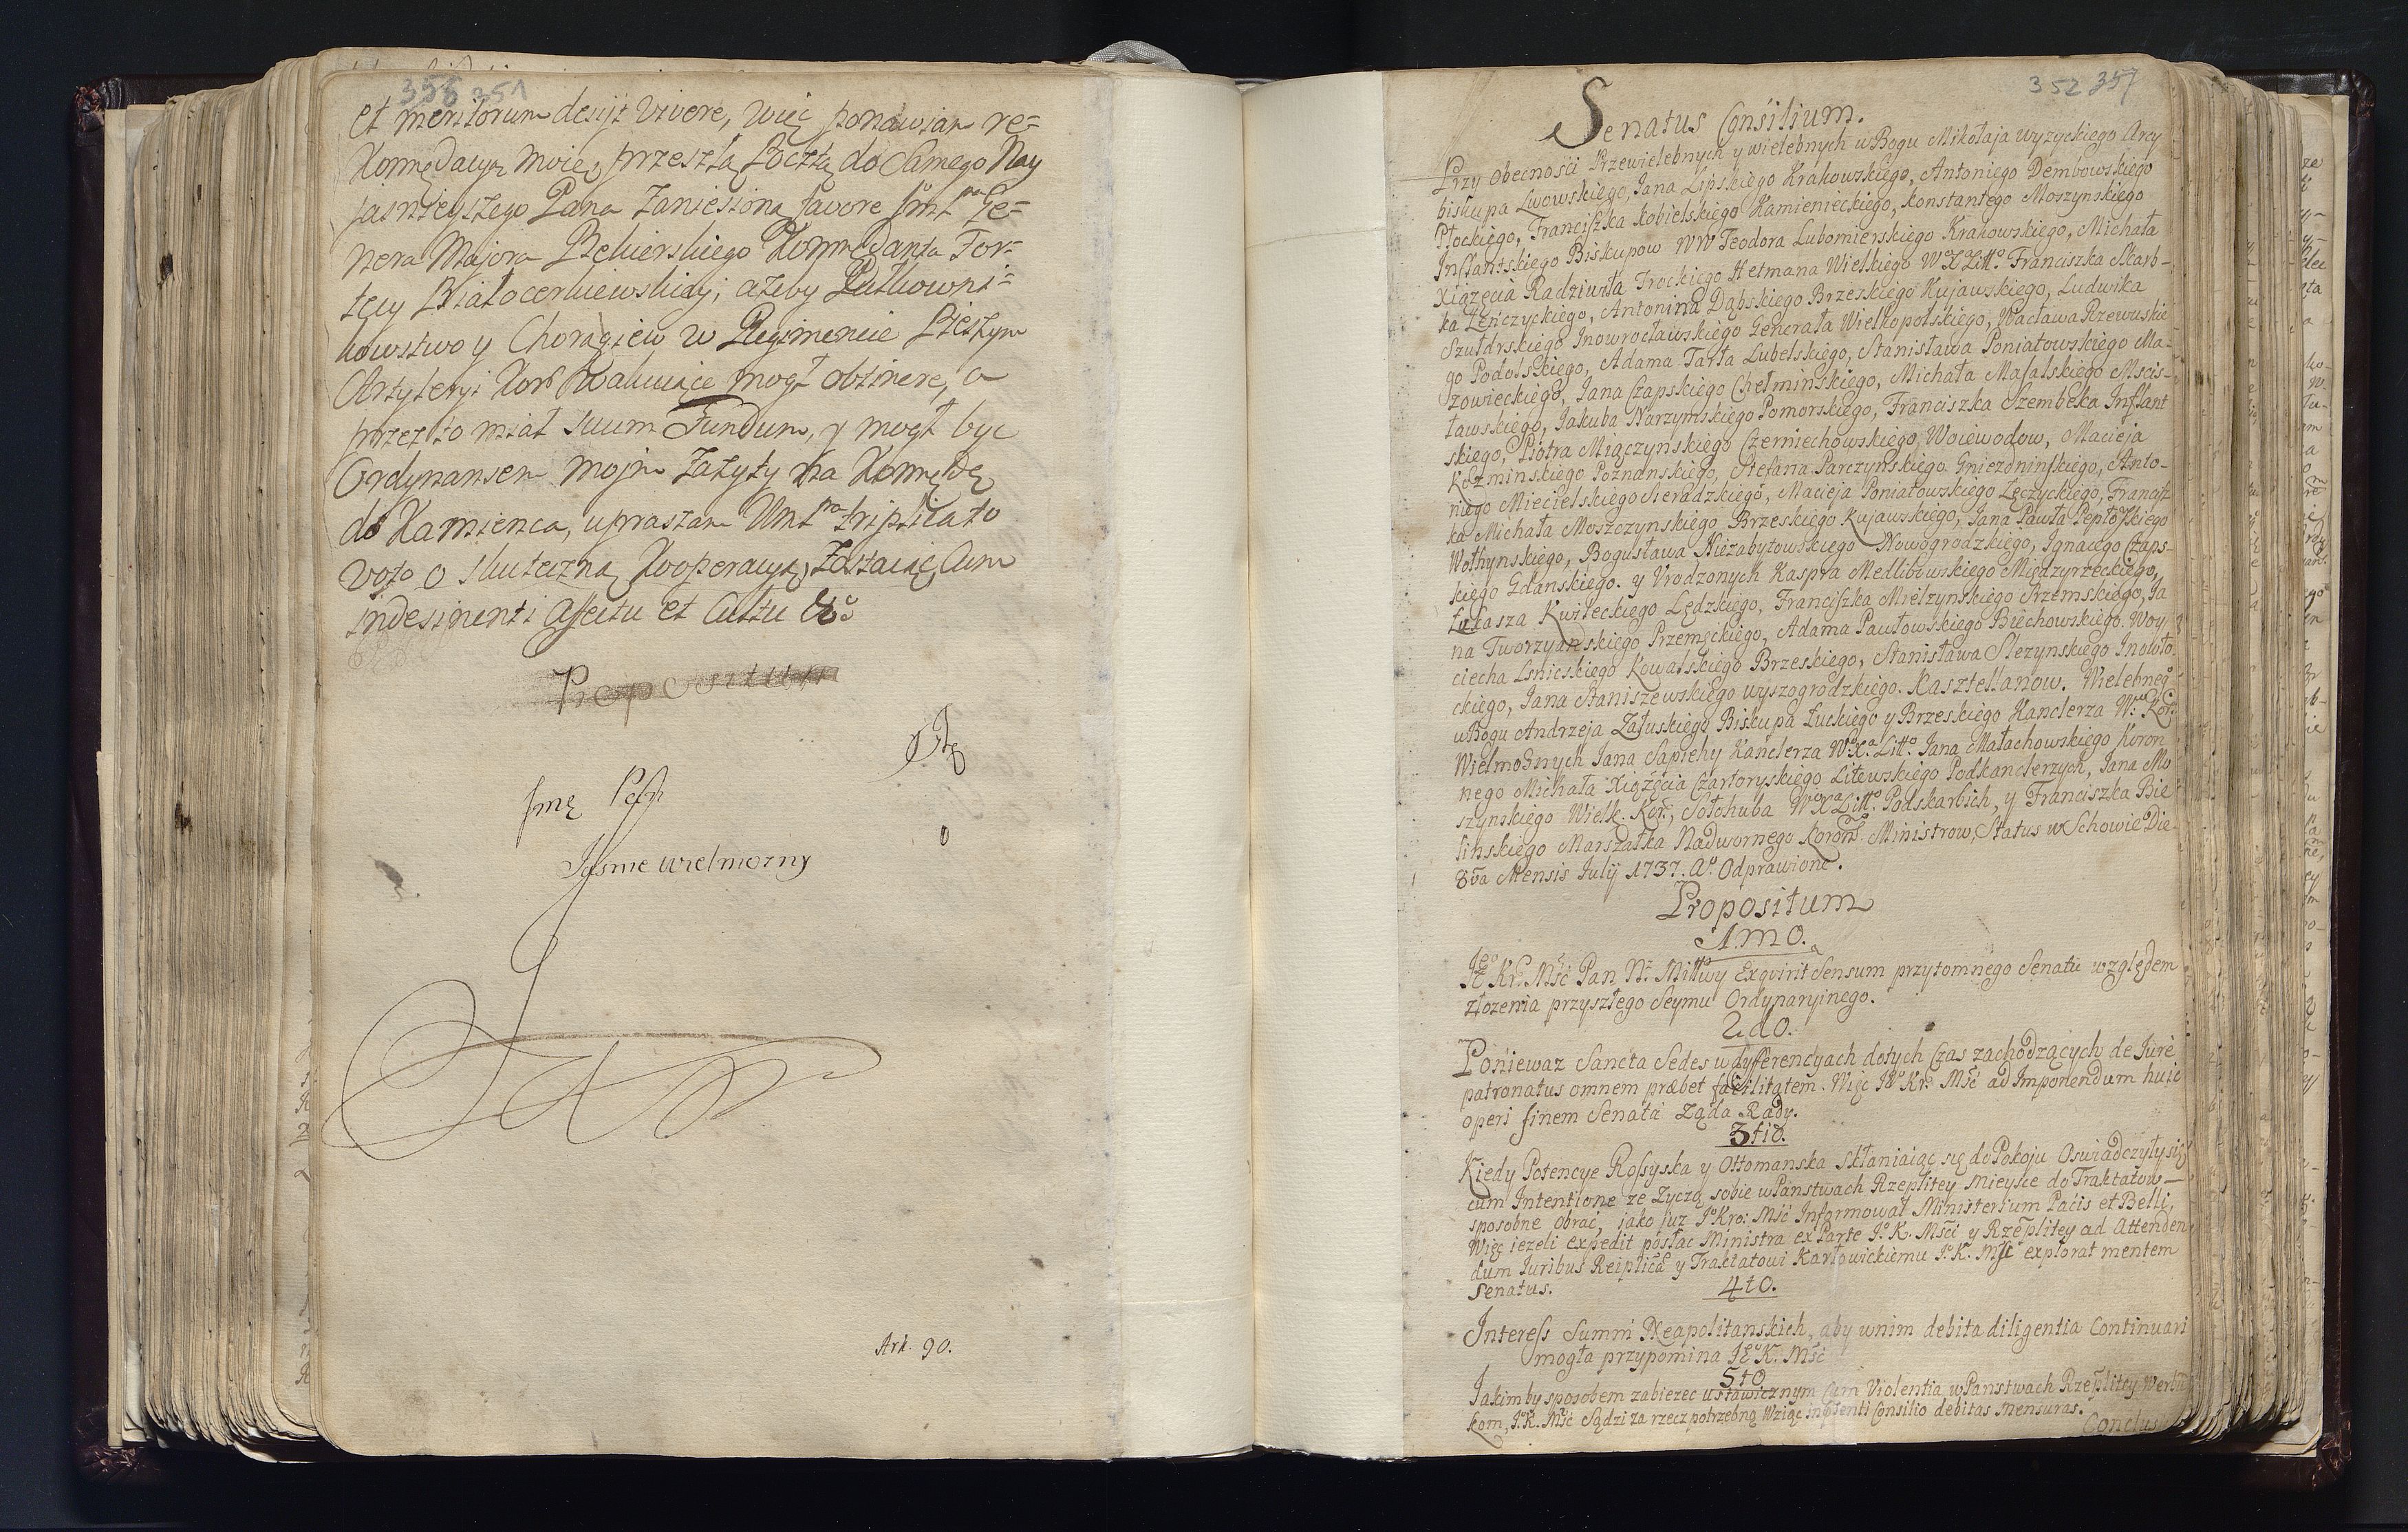 356 351
et meritorum desijt vivere, więc ponawiam re=
Kommędacyą moię przeszłą Pocztą do Samego Nay
jasnieyszego Pana Zaniesioną favore Jmć Pna Ge=
nera Majora Komędanta For=
tecy Białocerkiewskiey; ażeby Pułkowni=
kowstwo y Chorągiew w Regimencie Pieszym
Artyleryi Kor Wakuiące mogł obtinere, a
przez to miał suum Fundum, y mogł byc
Ordynansem moim zażyty na Komędę
do Kamienca, upraszam Wmć Pna triplicato
voto o skuteczną Kooperacyą, Zostaiąc Cum
indesinenti affectu et Cultu &c
Propositum
Jmę
Jasnie wielmozny
Ark. 90.
352 357
Senatus Consilium.
Przy obecnosci Przewielebnych y wielebnych w Bogu Mikołaja wyzyckiego Arcy
biskupa Lwowskiego, Jana Lipskiego Krakowskiego, Antoniego Dembowskiego
Płockiego, Franciszka Kobielskiego Kamienieckiego, Konstantego Moszynskiego
Inflantskiego Biskupow WW Teodora Lubomierskiego Krakowskiego, Michała
Xiązęcia Radziwiła Trockiego Hetmana Wielkiego W X Litto. Franciszka Skarb-
ka Łęnczyckiego, Antonina Dąbskiego Brzeskiego Kujawskiego, Ludwika
Szułdrskiego Inowrocławskiego Generała Wielkopolskiego, Wacława Rzewuskie
go Podolskiego, Adama Tarła Lubelskiego, Stanisława Poniatowskiego Ma-
zowieckiego, Jana Czapskiego Chełminskiego, Michała Masalskiego Mscis-
ławskiego, Jakuba Narzymskiego Pomorskiego, Franciszka Szembeka Inflant
skiego, Piotra Miączynskiego Czerniechowskiego Woiewodow, Macieja
Kozminskiego Poznanskiego, Stefana Parczynskiego Gniezdninskiego, Anto-
niego Miecielskiego Sieradzkiego, Macieja Poniatowskiego Łęczyckiego, Francisz
ka Michała Moszczynskiego Brzeskiego Kujawskiego, Jana Pawła Peptowskiego
Wołhynskiego, Bogusława Niezabytowskiego Nowogrodzkiego, Ignacego Czaps-
kiego Gdanskiego. y Urodzonych Kaspra Medlibowskiego Międzyrzeckiego,
Łukasza Kwileckiego Lędzkiego, Franciszka Mielzynskiego Srzemskiego, Ja
na Tworzyanskiego Przemęckiego, Adama Pawłowskiego Biechowskiego. Woy
ciecha Lsnicskiego Kowalskiego Brzeskiego, Stanisława Slezynskiego Inowło
ckiego, Jana Staniszewskiego wyszogrodzkiego. Kasztellanow. Wielebnego
w Bogu Andrzeja Załuskiego Biskupa Łuckiego y Brzeskiego Kanclerza W. Kor.
Wielmoznych Jana Sapiehy Kanclerza W. X. Litto. Jana Małachowskiego Koron
nego Michała Xiązęcia Czartoryskiego Litewskiego Podkanclerzych, Jana Mo
szynskiego Wielk. Kor., Sołohuba W X Litto. Podskarbich, y Franciszka Bie
linskiego Marszałka Nadwornego Koron. Ministrow, Status w Schowie Die
8va Mensis July 1737. Ao. Odprawione.
Propositum
1mo.
Jeo Kr. Mść Pan N. Miłłwy Exqvirit Sensum przytomnego Senatu względem
złozenia przyszłego Seymu Ordynaryinego.
2do.
Poniewaz Sancta Sedes w dyfferencyach dotych Czas zachodzących de Jure
patronatus omnem præbet facilitatem. Więc Jo Kr. Mść ad Imponendum huic
operi finem Senatu Ząda Rady.
3tio.
Kiedy Potencye Rossyska y Ottomanska skłaniaiąc się do Pokoju Oswiadczyły się
cum Intentione ze Zyczą sobie w Panstwach Rzeplitey mieysce do Traktatow
sposobne obrać, jako juz Jo Kro: Mść Informował Ministerium Pacis et Belli,
Więc iezeli expedit posłac Ministra ex Parte Jo. K. Mści y Rzeplitey ad Attenden
dum Juribus Reiplicæ y Traktatowi Karłowickiemu Jo. K. Mść explorat mentem
Senatus.
4to.
Interess Summ Neapolitanskich, aby w nim debita diligentia Continuari
mogła przypomina JEo K. Mść
5to
Jakimby sposobem zabiezec ustawicznym cum Violentia w Panstwach Rzeplitey Werbun
kom, Jo. K. Mść Sądzi za rzecz potrzebną wziąć in psenti Consilio debitas mensuras.
Conclus